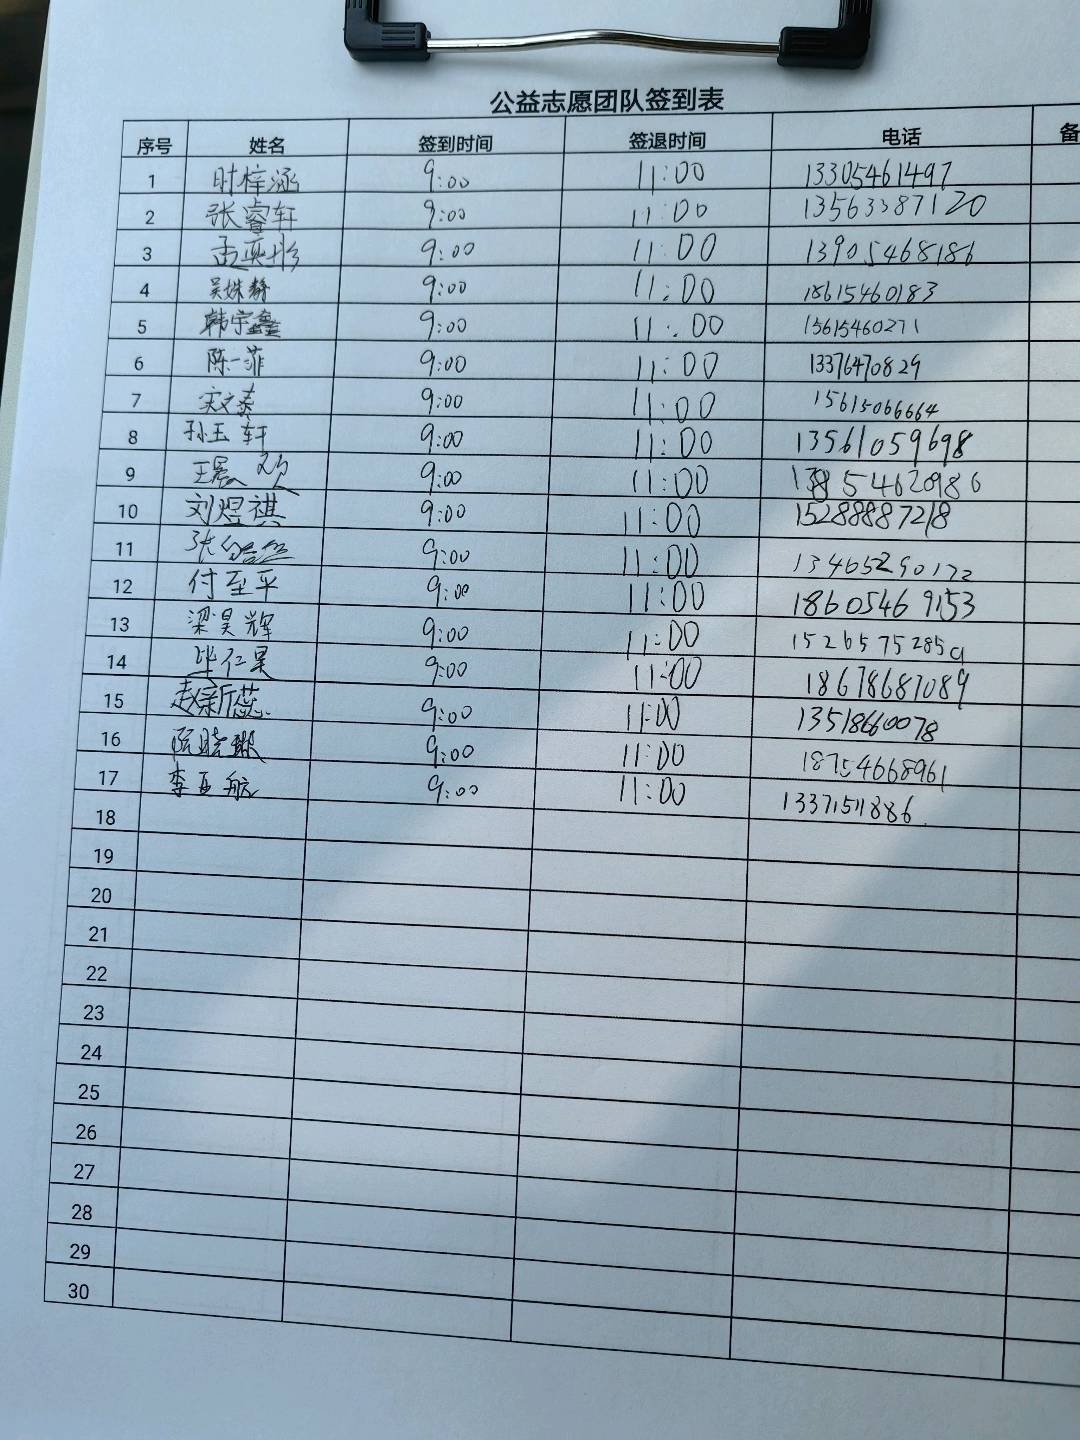 公益志愿团队签到表
序号 姓名 签到时间 签退时间 电话 备
1 时梓涵 9:00 11:00 13305461497
2 张睿轩 9:00 11:00 13563387120
3 孟奕彤 9:00 11:00 13905468186
4 吴姝静 9:00 11:00 18615460183
5 韩宇鑫 9:00 11:00 15615460271
6 陈一菲 9:00 11:00 13376470829
7 宋文泰 9:00 11:00 15615066664
8 孙玉轩 9:00 11:00 13561059698
9 王晨 9:00 11:00
10 刘煜祺 9:00 11:00 15288887218
11 张 9:00 11:00 13465290172
12 付至平 9:00 11:00 18605469153
13 梁昊辉 9:00 11:00 15265752859
14 毕仁昊 9:00 11:00 18678687089
15 赵新蕊 9:00 11:00 13518660078
16 陈晓琳 9:00 11:00 18754668961
17 李亚航 9:00 11:00 13371511886
18
19
20
21
22
23
24
25
26
27
28
29
30